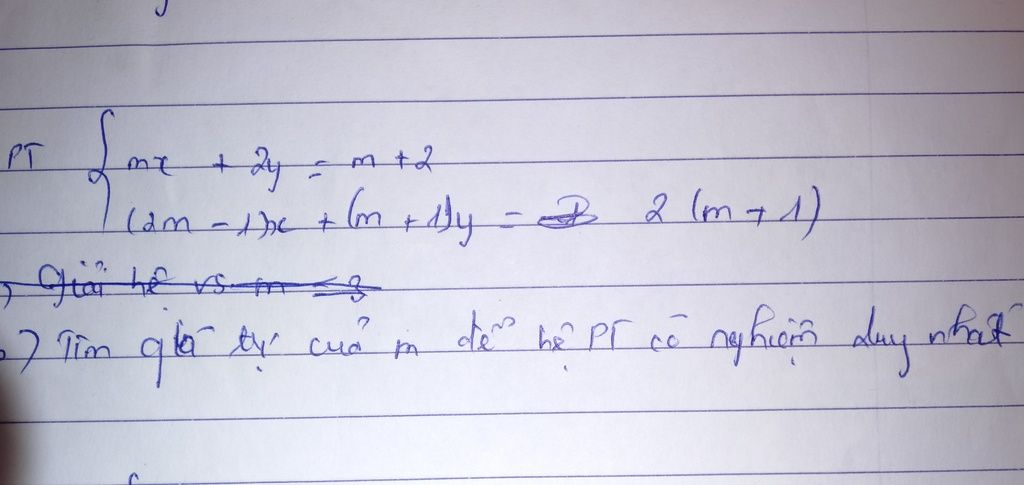 PT { mx + 2y = m + 2
(2m - 1)x + (m + 1)y = 2 (m + 1)
) Giải hệ vs m = 3
) Tìm giá trị của m để hệ PT có nghiệm duy nhất